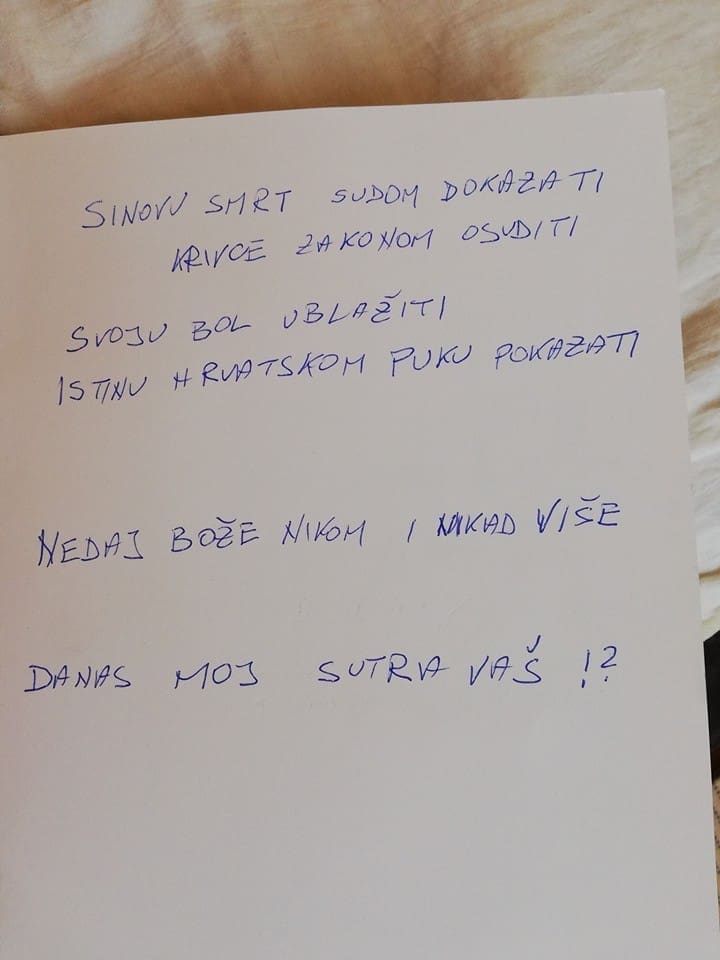 SINOVU SMRT SUDOM DOKAZATI
KRIVCE ZAKONOM OSUDITI
SVOJU BOL UBLAŽITI
ISTINU HRVATSKOM PUKU POKAZATI
NEDAJ BOŽE NIKOM I NIKAD VIŠE
DANAS MOJ SUTRA VAŠ !?